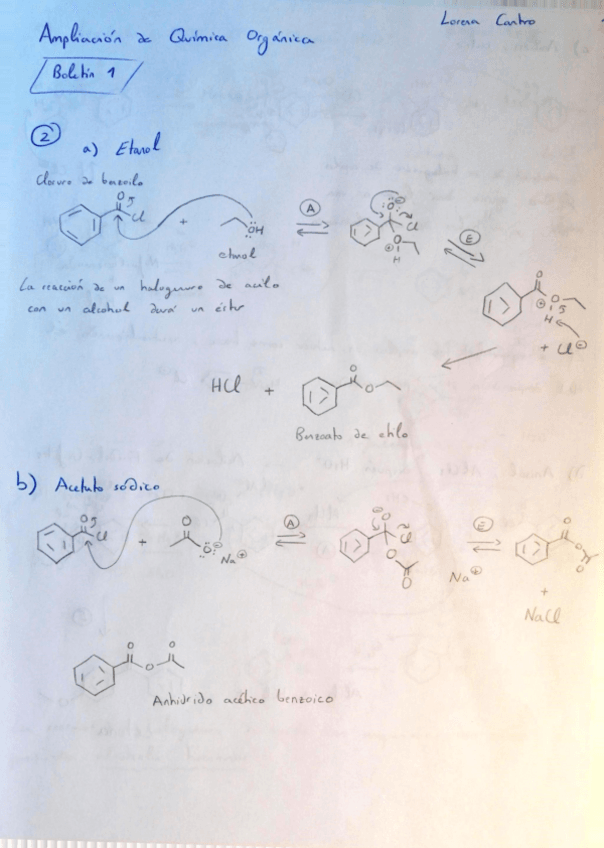 Lorena Castro
Ampliación de Química Orgánica
Boletín 1
2
a) Etanol
Cloruro de benzoilo
O
Cl
+
OH
etanol
A
O
Cl
O
H
E
O
O
H
+ Cl
La reacción de un halogenuro de acilo
con un alcohol dará un éster
HCl + O
O
Benzoato de etilo
b) Acetato sódico
O
Cl
+
O
O
Na
A
O
Cl
O
O
Na
E
O
O
O
+
NaCl
O
O
O
Anhidrido acético benzoico